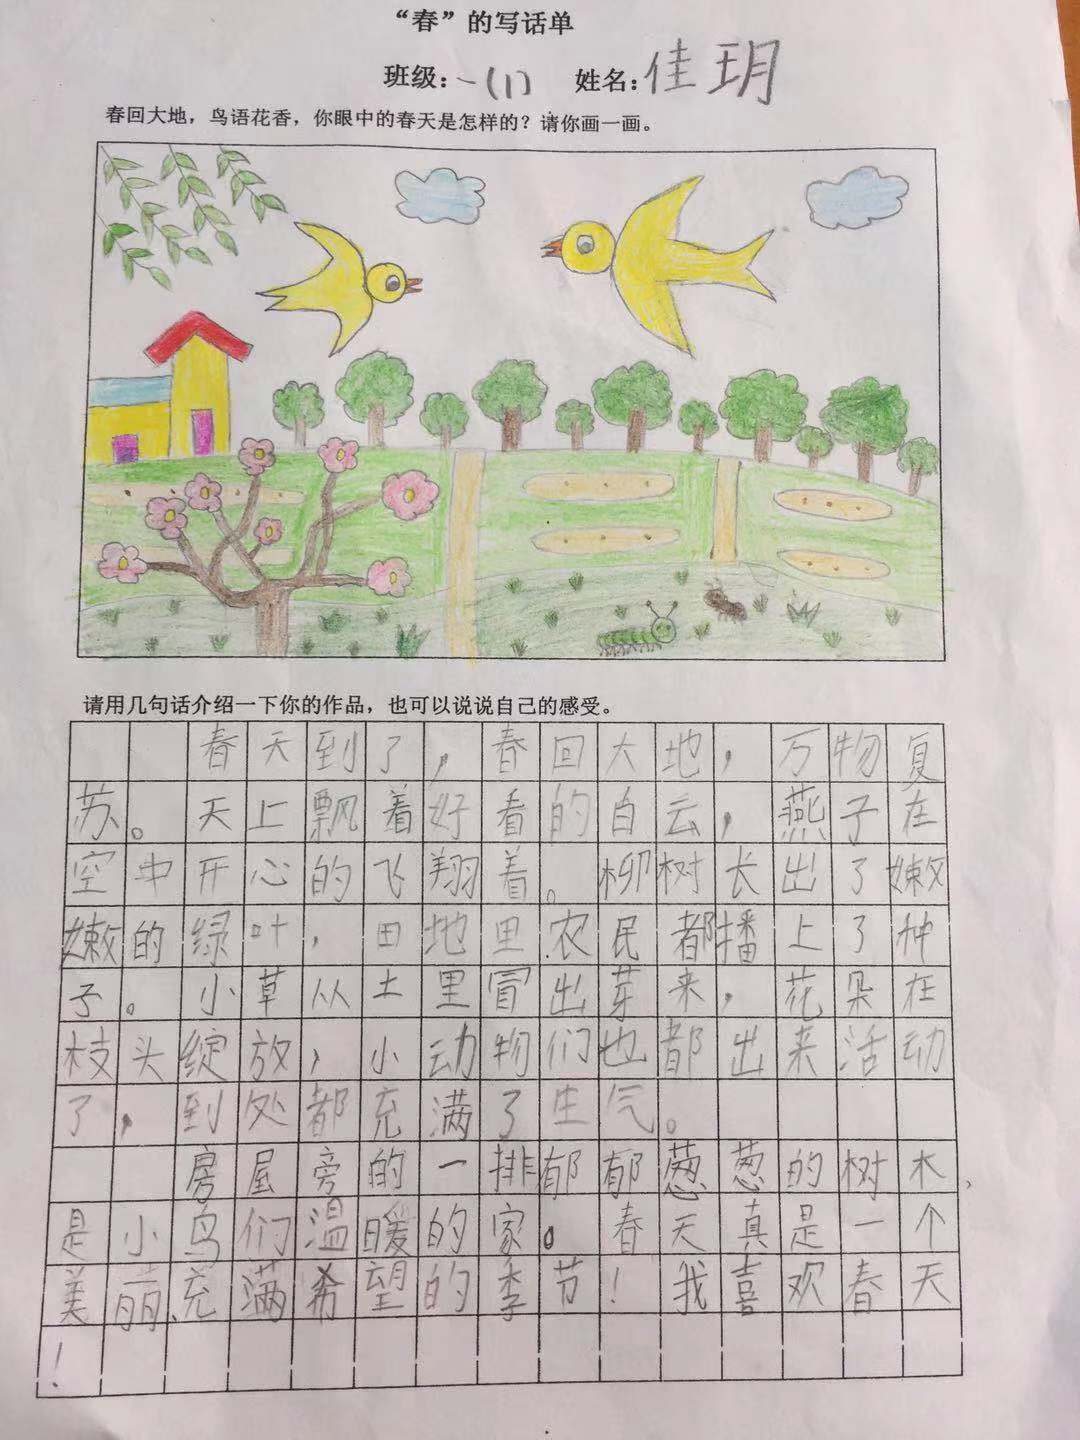 “春”的写话单
班级：一(1) 姓名：佳玥
春回大地，鸟语花香，你眼中的春天是怎样的？请你画一画。
请用几句话介绍一下你的作品，也可以说说自己的感受。
春天到了，春回大地，万物复
苏。天上飘着好看的白云，燕子在
空中开心的飞翔着。柳树长出了嫩
嫩的绿叶，田地里农民都播上了种
子。小草从土里冒出芽来，花朵在
枝头绽放，小动物们也都出来活动
了，到处都充满了生气。
房屋旁的一排郁郁葱葱的树木，
是小鸟们温暖的家。春天真是一个
美丽、充满希望的季节！我喜欢春天
！